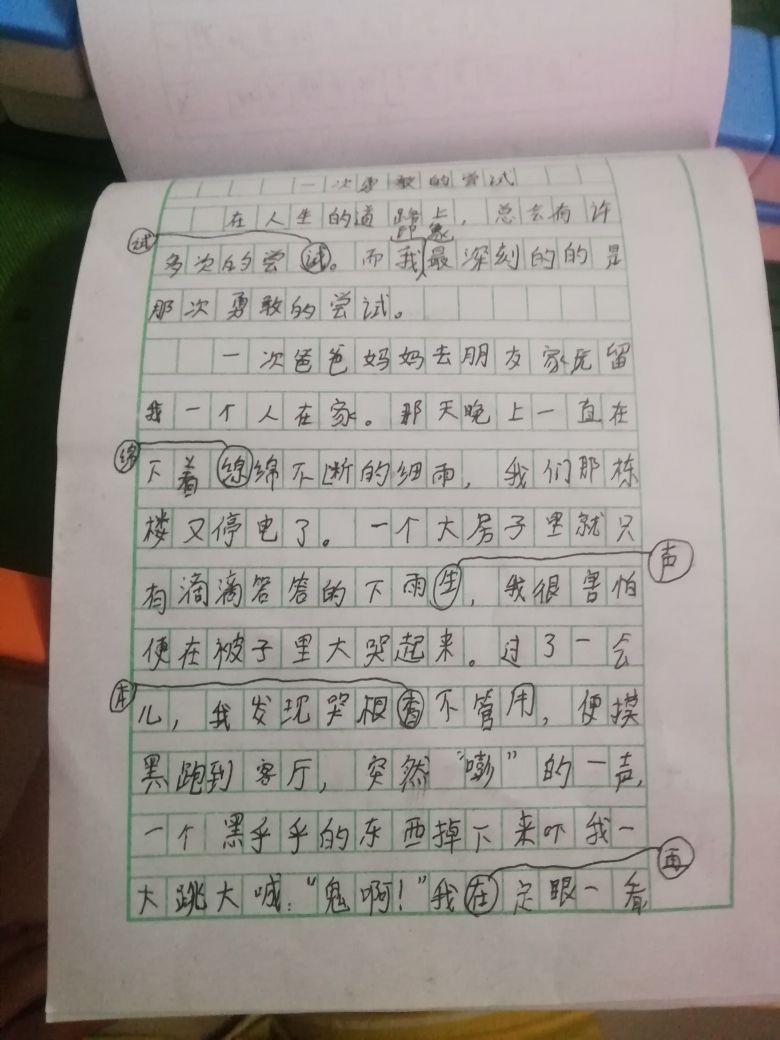 一次勇敢的尝试
在人生的道路上，总会有许
印象
试
多次的尝试。而我最深刻的的是
那次勇敢的尝试。
一次爸爸妈妈去朋友家玩留
我一个人在家。那天晚上一直在
绵
下着绵不断的细雨，我们那栋
楼又停电了。一个大房子里就只
声
有滴滴答答的下雨生，我很害怕
便在被子里大哭起来。过了一会
本
儿，我发现哭根不管用，便摸
黑跑到客厅，突然“嘭”的一声，
一个黑乎乎的东西掉下来吓我一
再
大跳大喊：“鬼啊！”我在定眼一看